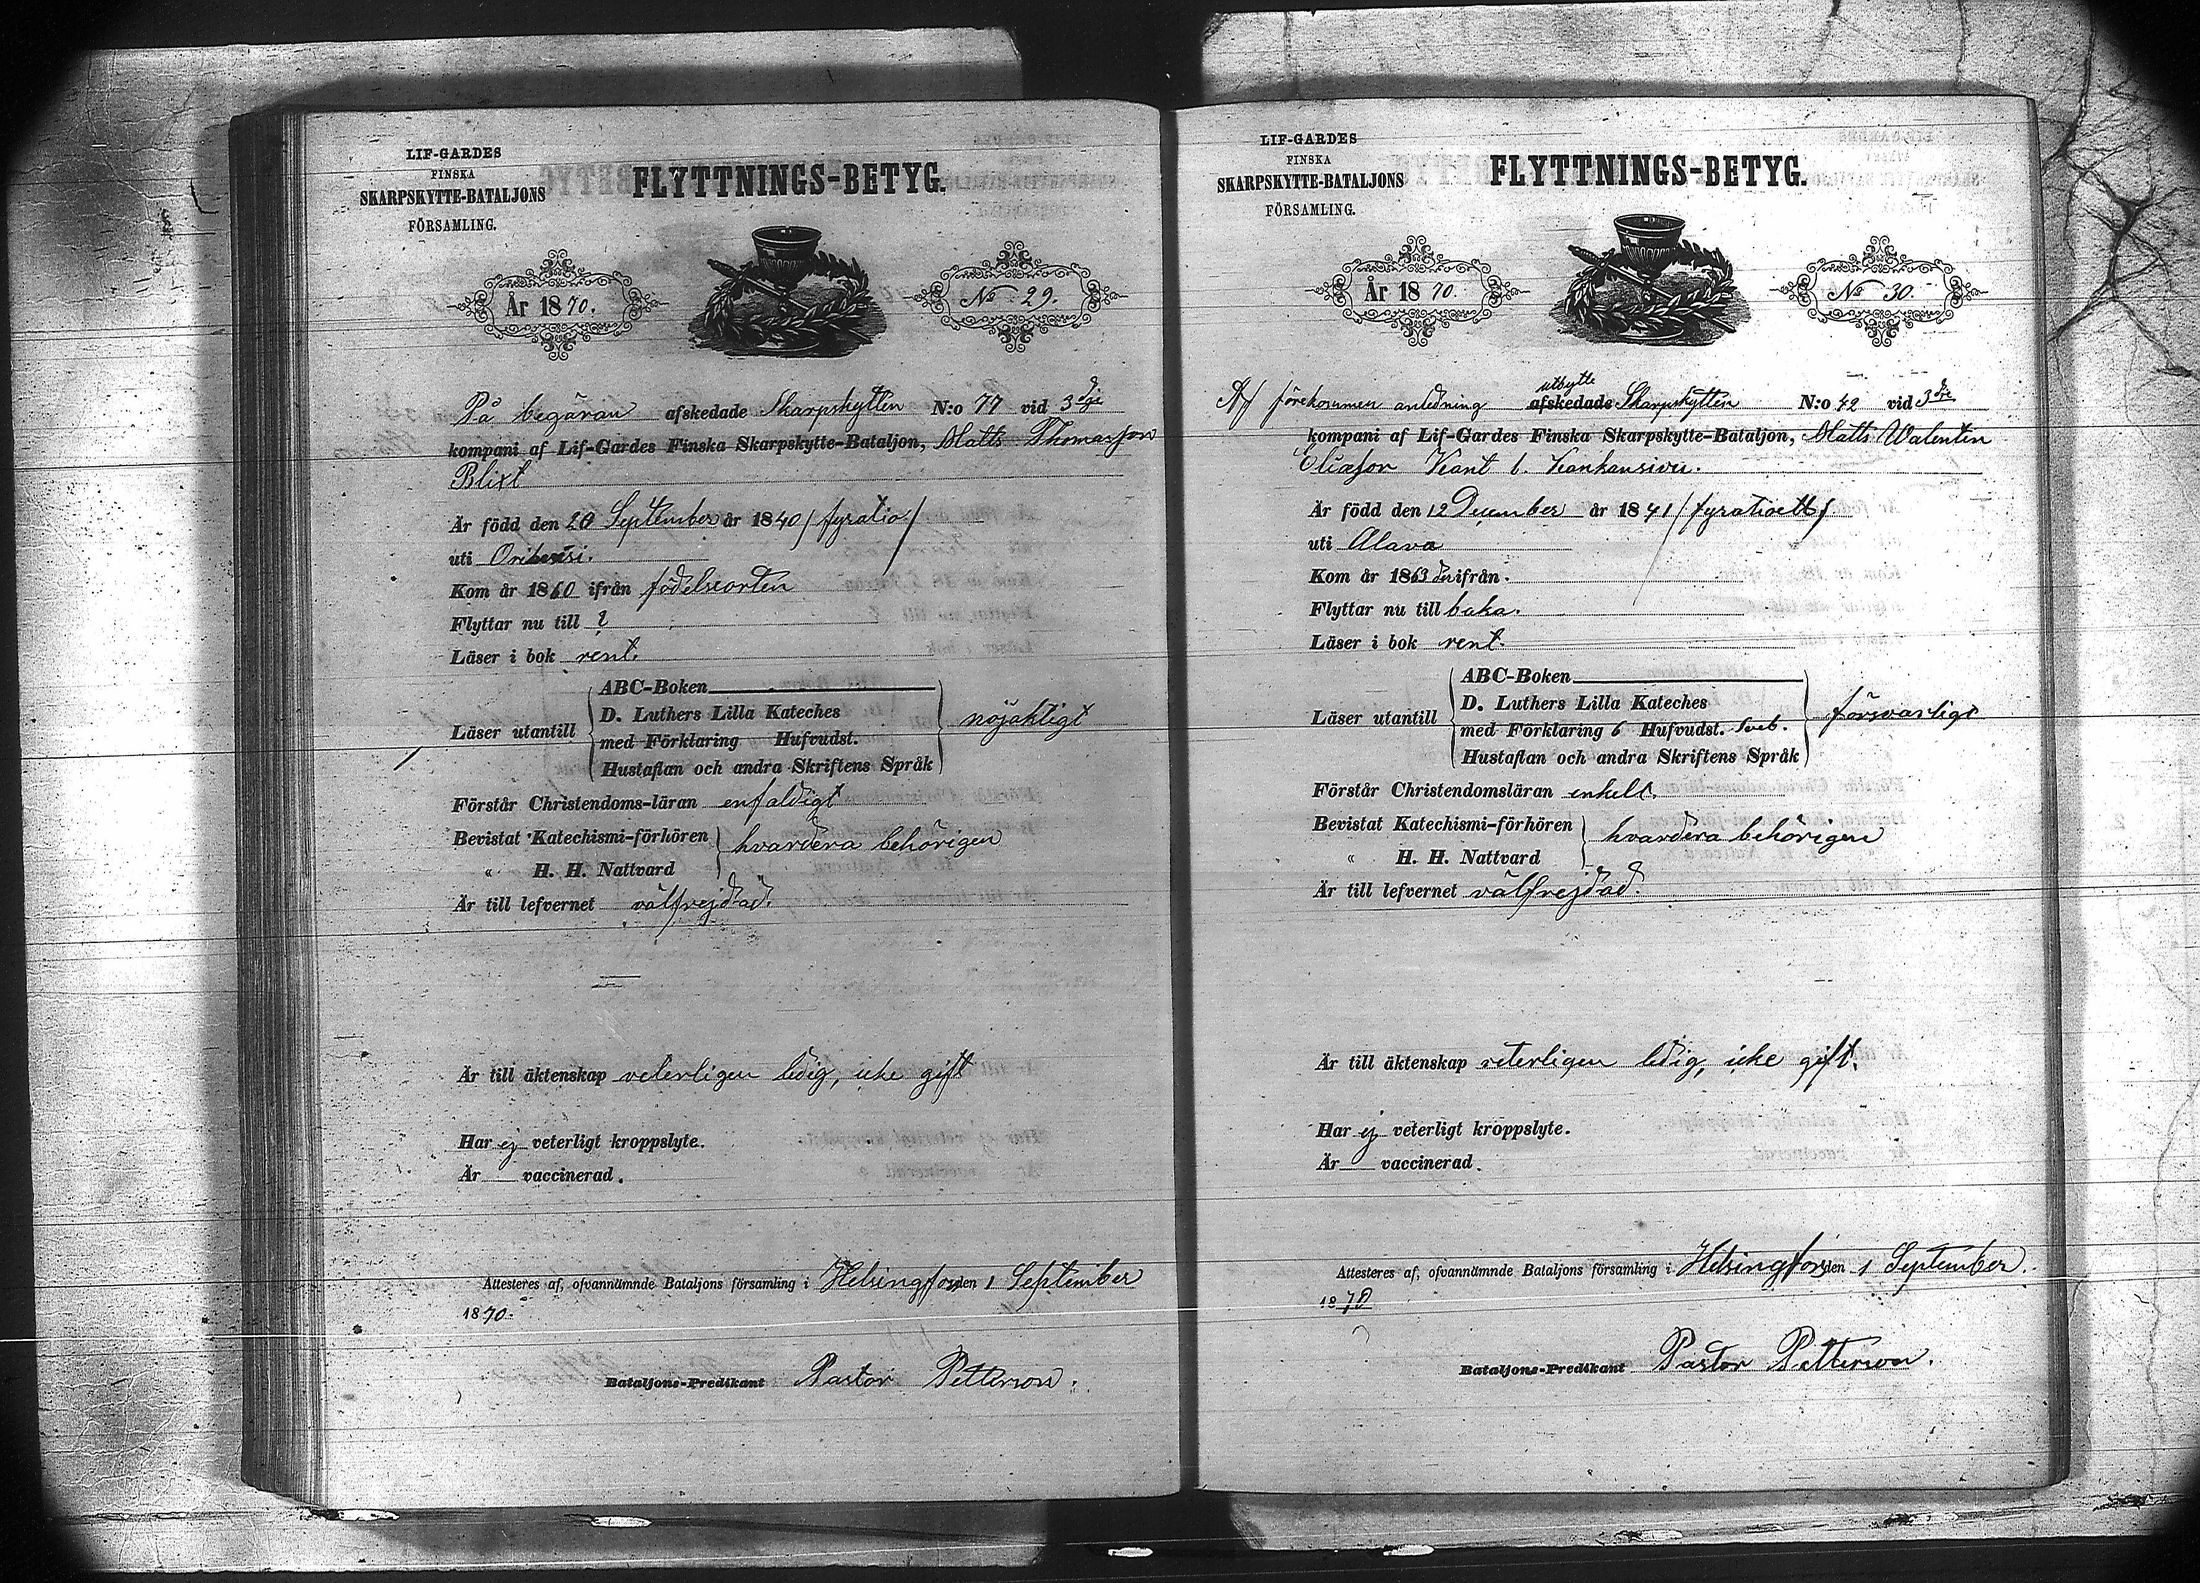 LIF-GARDES
FINSKA
SKARPSKYTTE-BATALJONS
FÖRSAMLING.
FLYTTNINGS-BETYG.
År 1870.
No 29.
På begäran afskedade Skarpskytten N:o 77 vid 3dje
kompani af Lif-Gardes Finska Skarpskytte-Bataljon, Matts Thomasson
Blixt
Är född den 20 September år 1840 / fyratio /
uti Orihvesi.
Kom år 1860 ifrån födelseorten
Flyttar nu till ?
Läser i bok rent.
ABC-Boken
D. Luthers Lilla Kateches
Läser utantill med Förklaring Hufvudst. nöjaktigt
Hustaflan och andra Skriftens Språk
Förstår Christendoms-läran enfaldigt
Bevistat Katechismi-förhören hvardera behörigen
" H. H. Nattvard
Är till lefvernet välfrejdad.
Är till äktenskap veterligen ledig, icke gift
Har ej veterligt kroppslyte.
Är vaccinerad.
Attesteres af, ofvannämnde Bataljons församling i Helsingfors den 1 September
1870.
Bataljons-Predikant Pastor Petterson.
LIF-GARDES
FINSKA
SKARPSKYTTE-BATALJONS
FÖRSAMLING.
FLYTTNINGS-BETYG.
År 1870.
No 30.
utbytte
Af förekommen anledning afskedade Skarpskytten N:o 42 vid 3dje
kompani af Lif-Gardes Finska Skarpskytte-Bataljon, Matts Walentin
Eliasson Kant l. Kankansivu.
Är född den 12 December år 1841 / fyratioett /
uti Alavo
Kom år 1863 derifrån.
Flyttar nu till baka.
Läser i bok rent.
ABC-Boken
D. Luthers Lilla Kateches
Läser utantill med Förklaring 6 Hufvudst. Sveb. försvarligt
Hustaflan och andra Skriftens Språk
Förstår Christendomsläran enkelt.
Bevistat Katechismi-förhören hvardera behörigen
" H. H. Nattvard
Är till lefvernet välfrejdad.
Är till äktenskap veterligen ledig, icke gift.
Har ej veterligt kroppslyte.
Är vaccinerad.
Attesteres af, ofvannämnde Bataljons församling i Helsingfors den 1 September
1870
Bataljons-Predikant Pastor Petterson.